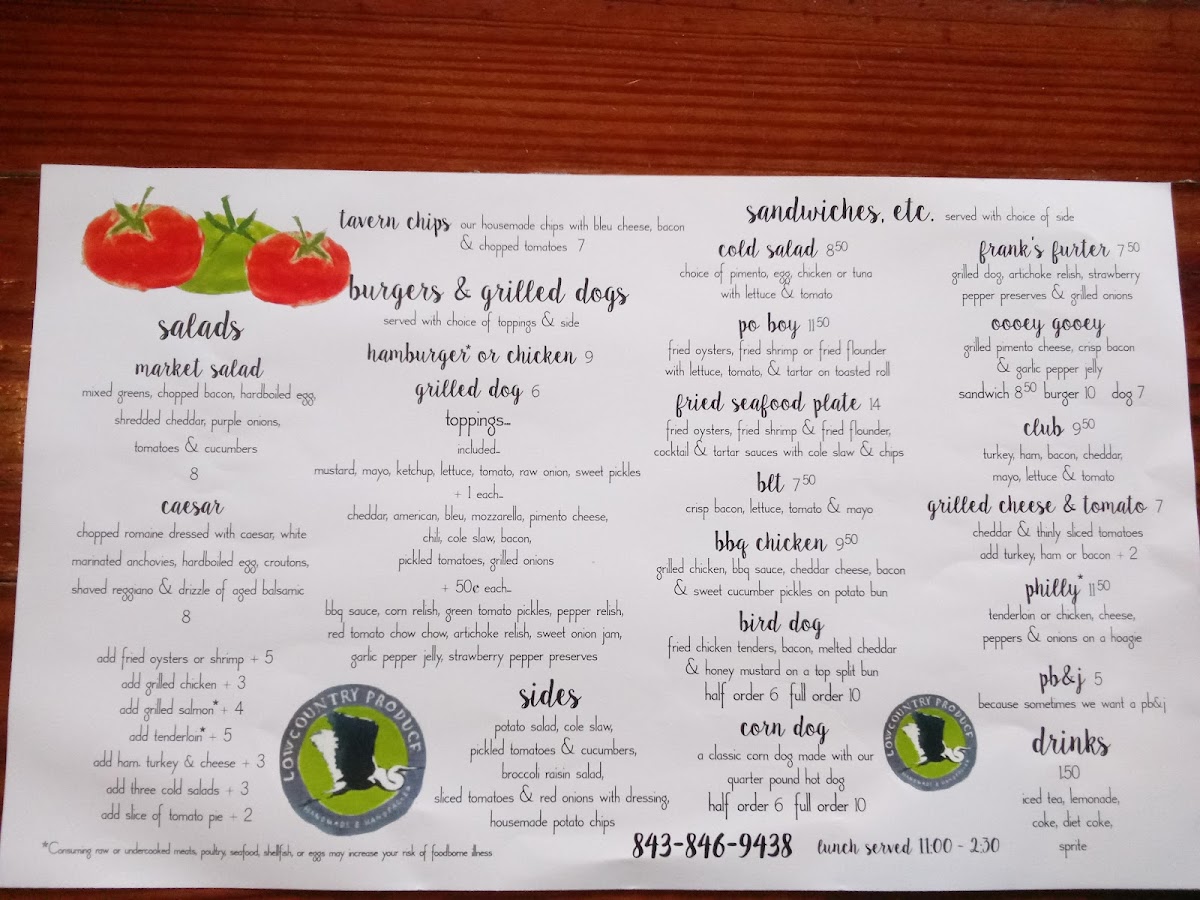 tavern chips our housemade chips with bleu cheese, bacon
& chopped tomatoes 7
salads
market salad
mixed greens, chopped bacon, hardboiled egg,
shredded cheddar, purple onions,
tomatoes & cucumbers
8
caesar
chopped romaine dressed with caesar, white
marinated anchovies, hardboiled egg, croutons,
shaved reggiano & drizzle of aged balsamic
8
add fried oysters or shrimp + 5
add grilled chicken + 3
add grilled salmon* + 4
add tenderloin* + 5
add ham, turkey & cheese + 3
add three cold salads + 3
add slice of tomato pie + 2
burgers & grilled dogs
served with choice of toppings & side
hamburger* or chicken 9
grilled dog 6
toppings...
included...
mustard, mayo, ketchup, lettuce, tomato, raw onion, sweet pickles
+ 1 each...
cheddar, american, bleu, mozzarella, pimento cheese,
chili, cole slaw, bacon,
pickled tomatoes, grilled onions
+ 50¢ each...
bbq sauce, corn relish, green tomato pickles, pepper relish,
red tomato chow chow, artichoke relish, sweet onion jam,
garlic pepper jelly, strawberry pepper preserves
LOWCOUNTRY PRODUCE
HANDMADE & HANDPACKED
sides
potato salad, cole slaw,
pickled tomatoes & cucumbers,
broccoli raisin salad,
sliced tomatoes & red onions with dressing,
housemade potato chips
sandwiches, etc. served with choice of side
cold salad 8 50
choice of pimento, egg, chicken or tuna
with lettuce & tomato
po boy 11 50
fried oysters, fried shrimp or fried flounder
with lettuce, tomato, & tartar on toasted roll
fried seafood plate 14
fried oysters, fried shrimp & fried flounder,
cocktail & tartar sauces with cole slaw & chips
blt 7 50
crisp bacon, lettuce, tomato & mayo
bbq chicken 9 50
grilled chicken, bbq sauce, cheddar cheese, bacon
& sweet cucumber pickles on potato bun
bird dog
fried chicken tenders, bacon, melted cheddar
& honey mustard on a top split bun
half order 6 full order 10
corn dog
a classic corn dog made with our
quarter pound hot dog
half order 6 full order 10
frank's furter 7 50
grilled dog, artichoke relish, strawberry
pepper preserves & grilled onions
oooey gooey
grilled pimento cheese, crisp bacon
& garlic pepper jelly
sandwich 8 50 burger 10 dog 7
club 9 50
turkey, ham, bacon, cheddar,
mayo, lettuce & tomato
grilled cheese & tomato 7
cheddar & thinly sliced tomatoes
add turkey, ham or bacon + 2
philly* 11 50
tenderloin or chicken, cheese,
peppers & onions on a hoagie
pb&j 5
because sometimes we want a pb&j
LOWCOUNTRY PRODUCE
HANDMADE & HANDPACKED
drinks
1.50
iced tea, lemonade,
coke, diet coke,
sprite
*Consuming raw or undercooked meats, poultry, seafood, shellfish, or eggs may increase your risk of foodborne illness
843-846-9438 lunch served 11:00 - 2:30